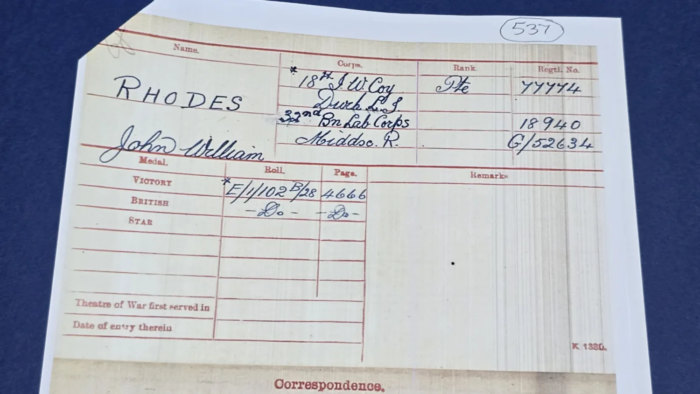 537
Name. Corps. Rank. Regtl. No.
RHODES
John William
* 18th I W Coy Pte 77774
Durh L.I
32nd Bn Lab Corps 18940
Middsx. R. G/52634
Medal. Roll. Page. Remarks
VICTORY * E/1/102 B/28 4666
BRITISH -Do- -Do-
STAR
Theatre of War first served in
Date of entry therein
K 1380.
Correspondence.